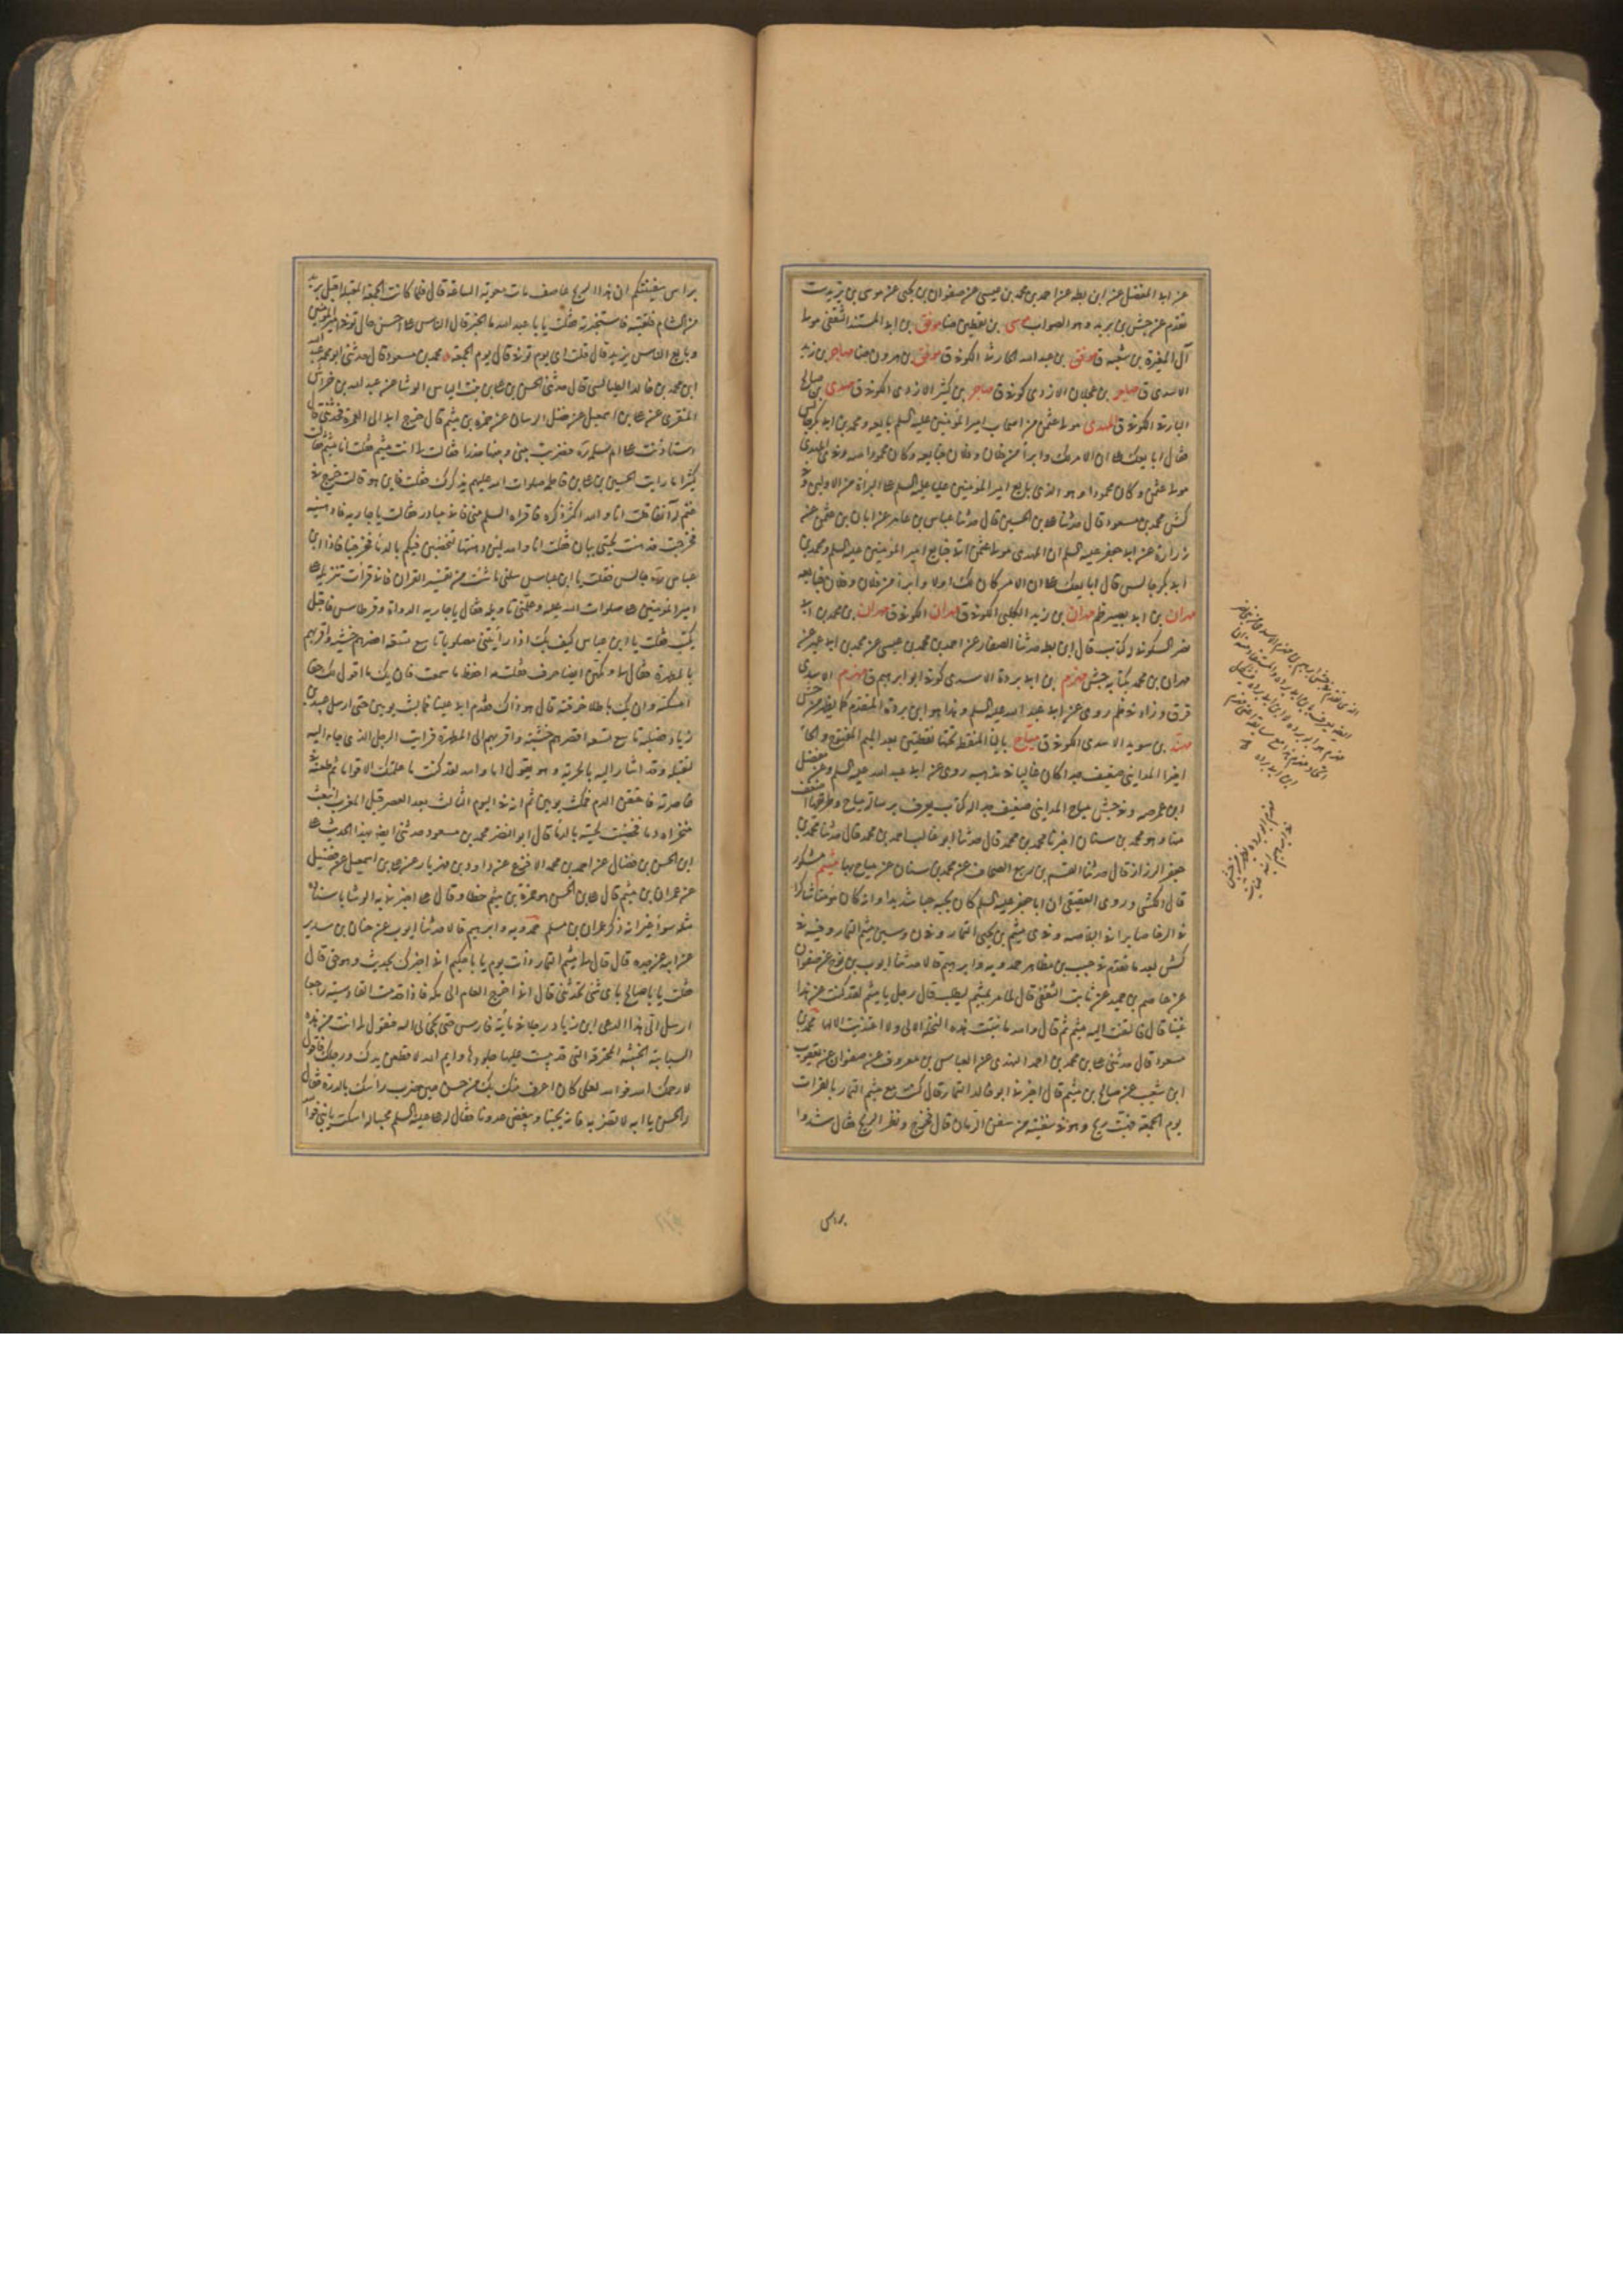 عن ابى المفضل عن ابن بطه عن احمد بن محمد بن عيسى عن صفوان بن يحيى عن موسى بن يزيد ست
تقدم عن جش بن بريد وهو الصواب موسى بن يقطين ضا موفق بن ابى المستند الثقفى مولى
آل المغيرة بن شعبه ق موفق بن عبد الله الحارثى الكوفى ق موفق بن هرون ضا مهاجر بن زيد
الاسدى ق مهاجر بن عجلان الازدى كوفى ق مهاجر بن كثير الازدى الكوفى ق مهدى بن صالح
الكوفى ق المهدى مولى عثمن من اصحاب امير المؤمنين عليه السلم بايعه ومحمد بن ابى بكر جالس
فقال ابايعك على ان الامر لك وابرأ من فلان وفلان فبايعه وكان محمودا
مولى عثمن وكان محمودا وهو الذى بايع امير المؤمنين عليه السلم على البراءة من الاولين وفى
كش محمد بن مسعود قال حدثنا على بن الحسين قال حدثنا عباس بن عامر عن ابان بن عثمن عن
زرارة عن ابى جعفر عليه السلم ان المهدى مولى عثمن اتى فبايع امير المؤمنين عليه السلم ومحمد بن
ابى بكر جالس قال ابايعك على ان الامر كان لك اولا وابرء من فلان وفلان فبايعه
مهران بن ابى بصير ظم مهران بن زيد الكلبى الكوفى ق مهران الكوفى ق مهران بن محمد بن ابى
نصر السكونى له كتاب قال ابن بطه حدثنا الصفار عن احمد بن محمد بن عيسى عن محمد بن ابى عمير عن
مهران بن محمد بكتابه جش مهزم بن ابى بردة الاسدى كوفى ابو ابرهيم ق مهزم الاسدى
قر ق وزاد فى ظم روى عن ابى عبد الله عليه السلم وهذا هو ابن بردة المتقدم كما يظهر من جش
بن سويد الاسدى الكوفى ق مياح بالياء المنقطة تحتها نقطتين بعد الميم المفتوح والحاء
اخيرا المداينى ضعيف جدا كان غاليا فى مذهبه روى عن ابى عبد الله عليه السلم وعن مفضل
ابن عمر صه وفى جش مياح المداينى ضعيف جدا له كتاب يعرف برسالة مياح وطريقها اضعف
منها وهو محمد بن سنان اخبرنا محمد بن محمد قال حدثنا ابو غالب احمد بن محمد قال حدثنا محمد بن
جعفر الرزاز قال حدثنا القسم بن ربيع الصحاف عن محمد بن سنان عن مياح بها ميثم مشكور
قال الكشى وروى العقيقى ان ابا جعفر عليه السلم كان يحبه حبا شديدا وانه كان مؤمنا شاكرا
فى الرخا صابرا فى البلا صه وفى ى ميثم بن يحيى التمار وفى ن وسين ميثم التمار وفيه فى
كش بعد ما تقدم فى حبيب بن مظاهر حمدويه وابرهيم قالا حدثنا ايوب بن نوح عن صفوان
عن عاصم بن حميد عن ثابت الثقفى قال لما مر بميثم ليصلب قال رجل يا ميثم لقد كنت عن هذا
غنيا قال فالتفت اليه ميثم ثم قال والله ما نبتت هذه النخلة الا لى ولا اغتذيت الا لها محمد بن
مسعود قال حدثنى على بن محمد بن احمد النهدى عن العباس بن معروف عن صفوان عن يعقوب
ابن شعيب عن صالح بن ميثم قال اخبرنى ابو خالد التمار قال كنت مع ميثم التمار بالفرات
يوم الجمعة فهبت ريح وهو فى سفينة من سفن الرمان قال فخرج ونظر الى الريح فقال شدوا
براس
براس سفينتكم ان هذا الريح عاصف مات معوية الساعة قال فلما كانت الجمعة المقبلة قدم بريد
من الشام فلقيته فاستخبرته فقلت يا با عبد الله ما الخبر قال الناس على احسن حال توفى امير المؤمنين
وبايع الناس يزيد قال قلت اى يوم توفى قال يوم الجمعة محمد بن مسعود قال حدثنى ابو محمد عبد الله
ابن محمد بن خالد الطيالسى قال حدثنى الحسن بن على بن بنت الياس الوشا عن عبد الله بن خراش
المنقرى عن على بن اسمعيل عن فضيل الرسان عن حمزه بن ميثم قال خرج ابى الى العمرة فحدثنى قال
استاذنت على ام سلمه رة فضربت بينى وبينها خدرا فقالت لى انت ميثم فقلت انا ميثم فقالت
كثيرا ما رايت الحسين بن على بن فاطمه صلوات الله عليهم يذكرك فقلت فاين هو قالت خرج فى
غنم له آنفا قلت انا والله اكثر ذكره فاقرئيه السلم منى فانى مبادر فقالت يا جاريه فادهنيه
فخرجت فدهنت لحيتى ببان فقلت انا والله لئن دهنتها لتخضبن فيكم بالدما فخرجنا فاذا ابن
عباس رة جالس فقلت يا ابن عباس سلنى ما شئت من تفسير القران فانى قرأت تنزيله على
امير المؤمنين على صلوات الله عليه وعلمنى تأويله فقال يا جاريه الدواة وقرطاس فاقبل
يكتب فقلت يا ابن عباس كيف بك اذا رأيتنى مصلوبا تاسع تسعة اقصرهم خشبة واقربهم
بالمطهرة فقال لى وتكهن ايضا خرق فقلت مه احفظ ما سمعت فان يك ما اقول لك حقا
امسكته وان يك باطلا خرقته قال هو ذاك فقدم ابى علينا فما لبث يومين حتى ارسل عبيد الله بن
زياد فصلبه تاسع تسعة اقصرهم خشبة واقربهم الى المطهرة فرايت الرجل الذى جاء اليه
ليقتله وقد اشار اليه بالحربه وهو يقول اما والله لقد كنت ما علمتك الا قواما ثم طعنه فى
خاصرته فاحتقن الدم فمكث يومين ثم انه فى اليوم الثالث بعد العصر قبل المغرب انبعث
منخراه دما فخضبت لحيته بالدما قال ابو النضر محمد بن مسعود حدثنى ايضا بهذا الحديث على
ابن الحسن بن فضال عن احمد بن محمد الاقرع عن داود بن مهزيار عن على بن اسمعيل عن فضيل
عن عمران بن ميثم قال على بن الحسن هو حمزة بن ميثم خطاء وقال على اخبرنى به الوشا باسناده
مثله سواء غير انه ذكر عمران بن ميثم حمدويه وابرهيم قالا حدثنا ايوب عن حنان بن سدير
عن ابيه عن جده قال قال لى ميثم التمار ذات يوم يا با حكيم انى اخبرك بحديث وهو حق قال
فقلت يا با صالح باى شئ تحدثنى قال انى اخرج العام الى مكه فاذا قدمت القادسيه راجعا
ارسل الى هذا الدعى ابن زياد رجلا فى مائة فارس حتى يجئ بى اليه فيقول لى انت من هذه
السبابية الخبيثة المحترقه التى قد يبست عليها جلودها وايم الله لاقطعن يدك ورجلك فاقول
لا رحمك الله فوالله لعلى كان اعرف بك من حسن حين ضرب راسك بالدرة فقال
له الحسن يا ابه لا تضربه فانه يحبنا ويبغض عدونا فقال له على عليه السلم مجيبا له اسكت يا بنى فوالله